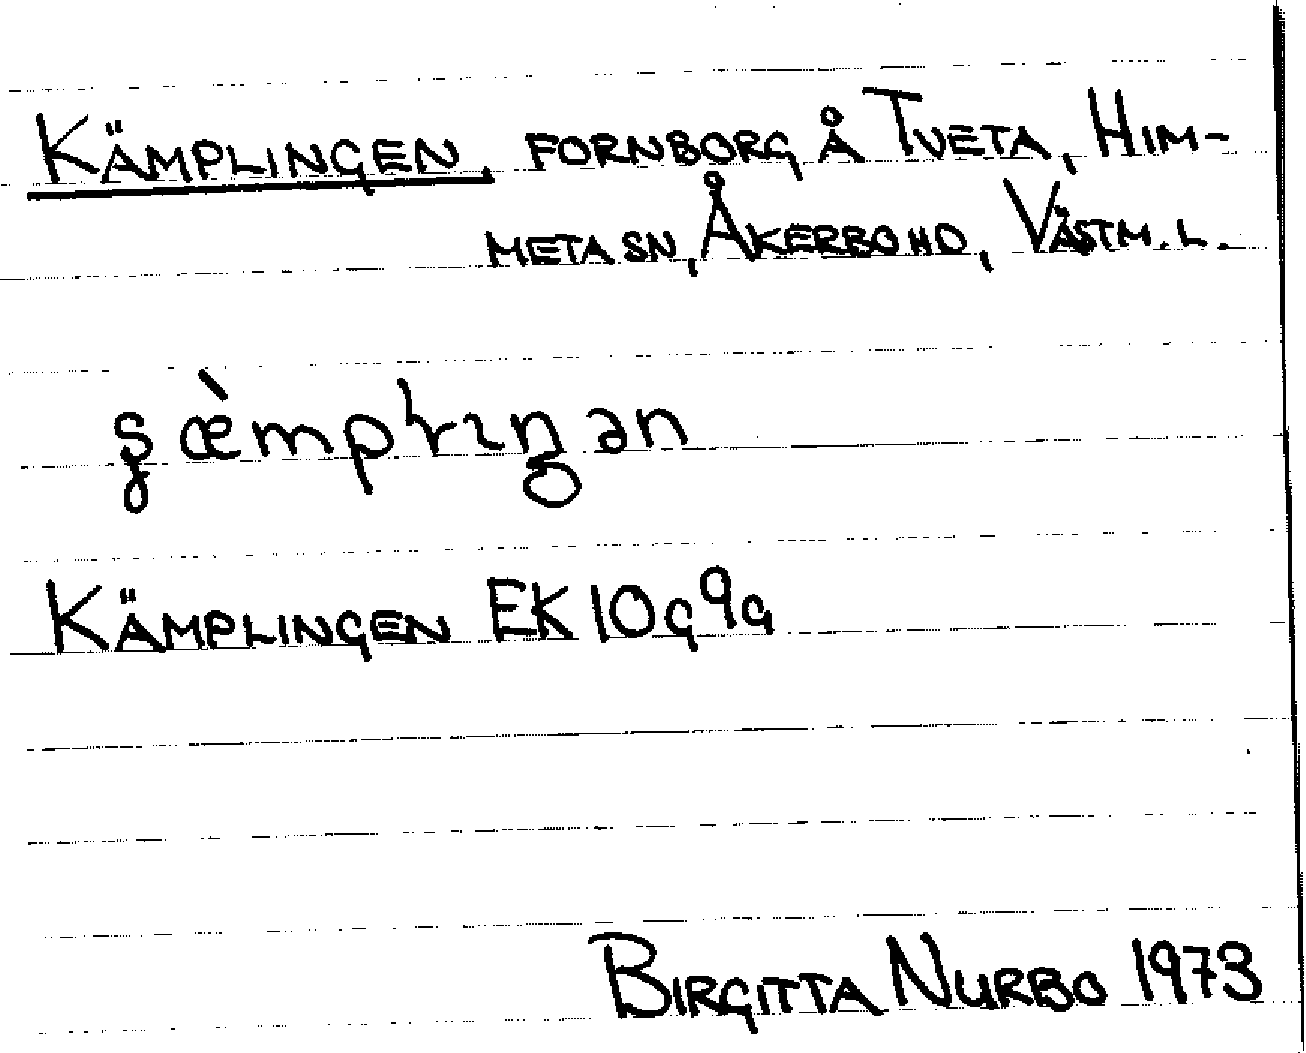 KÄMPLINGEN, FORNBORG Å TVETA, HIM-
META SN, ÅKERBO HD, VÄSTM. L.
KÄMPLINGEN EK 10g9g
BIRGITTA NURBO 1973